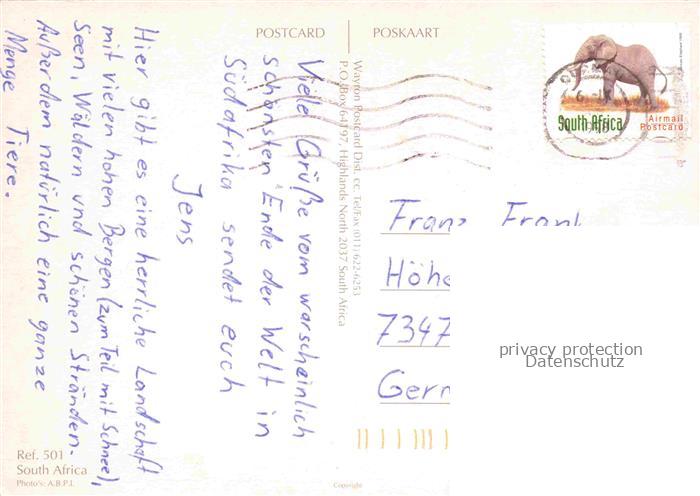 POSTCARD
POSKAART
South Africa
Airmail
Postcard
Viele Grüße vom warscheinlich
schönsten Ende der Welt in
Südafrika sendet euch
Jens
Hier gibt es eine herrliche Landschaft
mit vielen hohen Bergen (zum Teil mit Schnee),
Seen, Wäldern und schönen Stränden.
Außerdem natürlich eine ganze
Menge Tiere.
Wayton Postcard Dist. cc. Tel/Fax (011) 622-6253
P.O. Box 64197, Highlands North 2037 South Africa
Franz Frank
Höhe
7347
Gern
privacy protection
Datenschutz
Ref. 501
South Africa
Photo's: A.B.P.L.
Copyright